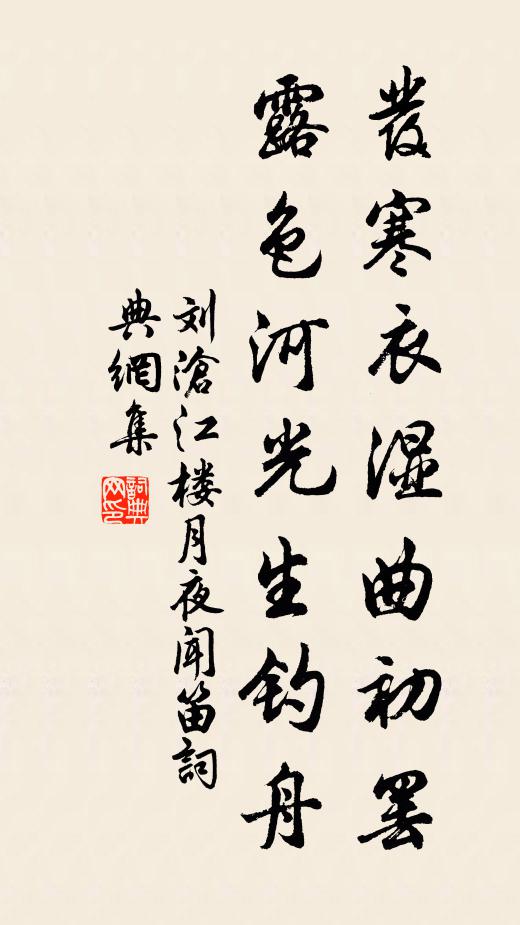 发寒衣湿曲初罢
露色河光生钓舟
刘滄江楼月夜闻笛詞
典網集
詞典网印